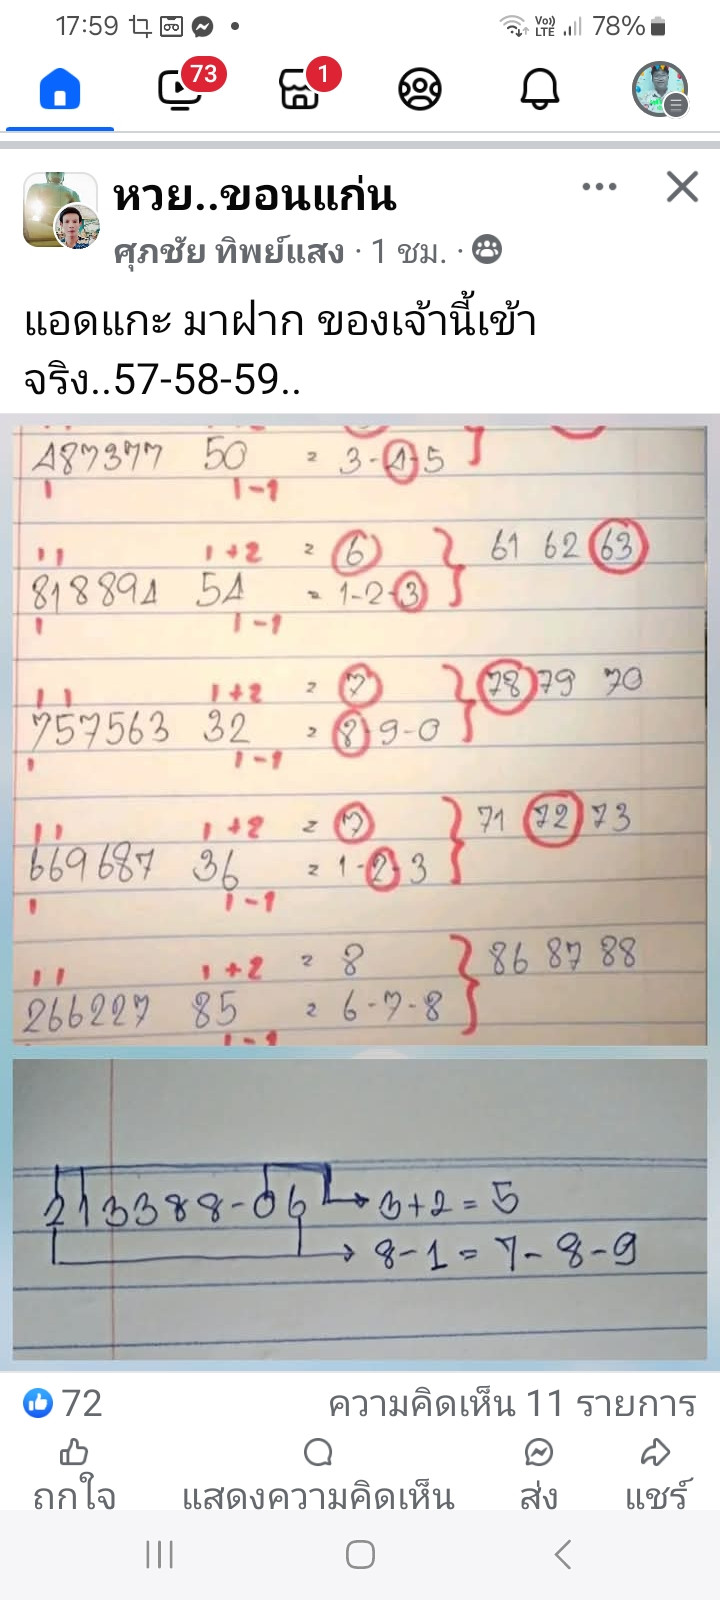 17:59 Vo)) LTE 78%
73 1
หวย..ขอนแก่น
ศุภชัย ทิพย์แสง · 1 ชม. ·
แอดแกะ มาฝาก ของเจ้านี้เข้า
จริง..57-58-59..
487377 50 = 3-4-5
1 1-1
11 1+2 = 6 61 62 63
818894 54 = 1-2-3
1 1-1
11 1+2 = 7 78 79 70
757563 32 = 8-9-0
1 1-1
11 1+2 = 7 71 72 73
669687 36 = 1-2-3
1 1-1
11 1+2 = 8 86 87 88
266227 85 = 6-7-8
1-1
213388-06 → 3+2=5
→ 8-1=7-8-9
72 ความคิดเห็น 11 รายการ
ถูกใจ แสดงความคิดเห็น ส่ง แชร์